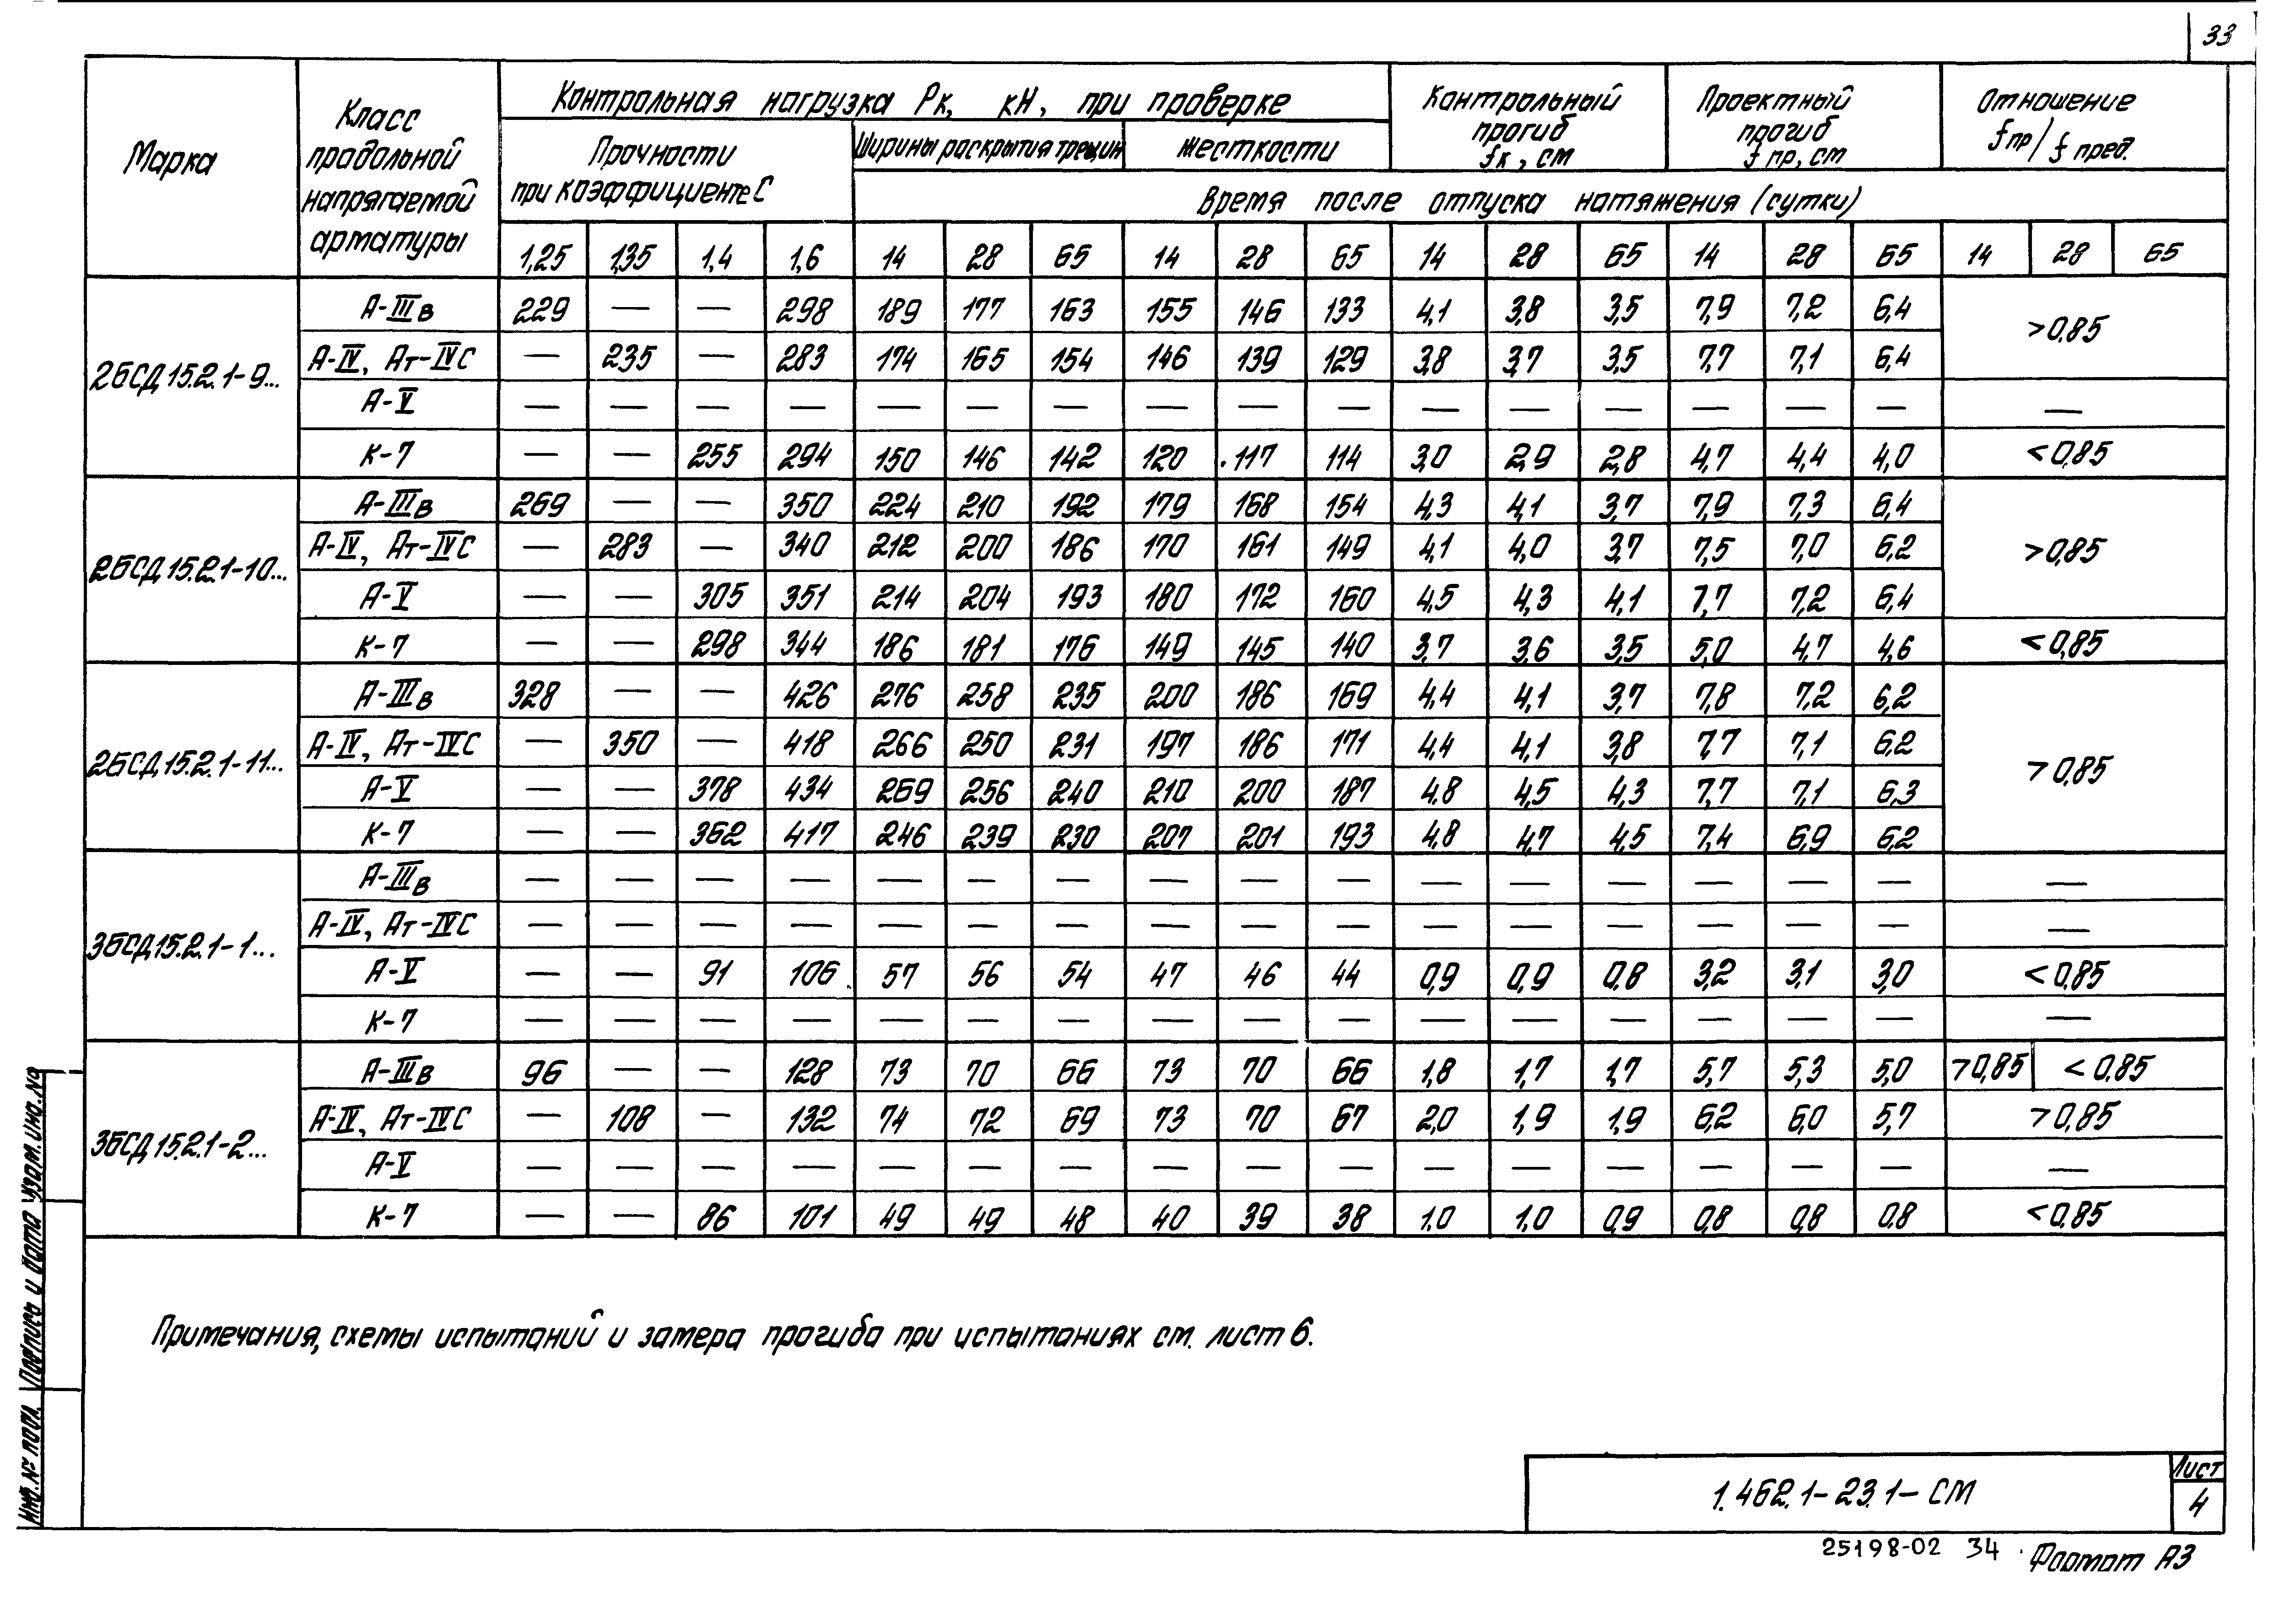 33
Марка
Класс продольной напрягаемой арматуры
Контрольная нагрузка Рк, кН, при проверке
Контрольный прогиб fк, см
Проектный прогиб fпр, см
Отношение fпр/fпред.
Прочности при коэффициенте С
Ширины раскрытия трещин
жесткости
Время после отпуска натяжения (сутки)
1,25 1,35 1,4 1,6 14 28 65 14 28 65 14 28 65 14 28 65 14 28 65
2БСД15.2.1-9...
А-IIIв 229 — — 298 189 177 163 155 146 133 4,1 3,8 3,5 7,9 7,2 6,4 >0,85
А-IV, Ат-IVС — 235 — 283 174 165 154 146 139 129 3,8 3,7 3,5 7,7 7,1 6,4
А-V — — — — — — — — — — — — — — — — —
К-7 — — 255 294 150 146 142 120 117 114 3,0 2,9 2,8 4,7 4,4 4,0 <0,85
2БСД15.2.1-10...
А-IIIв 269 — — 350 224 210 192 179 168 154 4,3 4,1 3,7 7,9 7,3 6,4 >0,85
А-IV, Ат-IVС — 283 — 340 212 200 186 170 161 149 4,1 4,0 3,7 7,5 7,0 6,2
А-V — — 305 351 214 204 193 180 172 160 4,5 4,3 4,1 7,7 7,2 6,4
К-7 — — 298 344 186 181 176 149 145 140 3,7 3,6 3,5 5,0 4,7 4,6 <0,85
2БСД15.2.1-11...
А-IIIв 328 — — 426 276 258 235 200 186 169 4,4 4,1 3,7 7,8 7,2 6,2 >0,85
А-IV, Ат-IVС — 350 — 418 266 250 231 197 186 171 4,4 4,1 3,8 7,7 7,1 6,2
А-V — — 378 434 269 256 240 210 200 187 4,8 4,5 4,3 7,7 7,1 6,3
К-7 — — 362 417 246 239 230 207 201 193 4,8 4,7 4,5 7,4 6,9 6,2
3БСД15.2.1-1...
А-IIIв — — — — — — — — — — — — — — — — —
А-IV, Ат-IVС — — — — — — — — — — — — — — — — —
А-V — — 91 106 57 56 54 47 46 44 0,9 0,9 0,8 3,2 3,1 3,0 <0,85
К-7 — — — — — — — — — — — — — — — — —
3БСД15.2.1-2...
А-IIIв 96 — — 128 73 70 66 73 70 66 1,8 1,7 1,7 5,7 5,3 5,0 >0,85 <0,85
А-IV, Ат-IVС — 108 — 132 74 72 69 73 70 67 2,0 1,9 1,9 6,2 6,0 5,7 >0,85
А-V — — — — — — — — — — — — — — — — —
К-7 — — 86 101 49 49 48 40 39 38 1,0 1,0 0,9 0,8 0,8 0,8 <0,85
Примечания, схемы испытаний и замера прогиба при испытаниях см. лист 6.
Инв.№ подл. Подпись и дата Взам.инв.№
1.462.1-23.1-СМ
Лист
4
25198-02 34
Формат А3